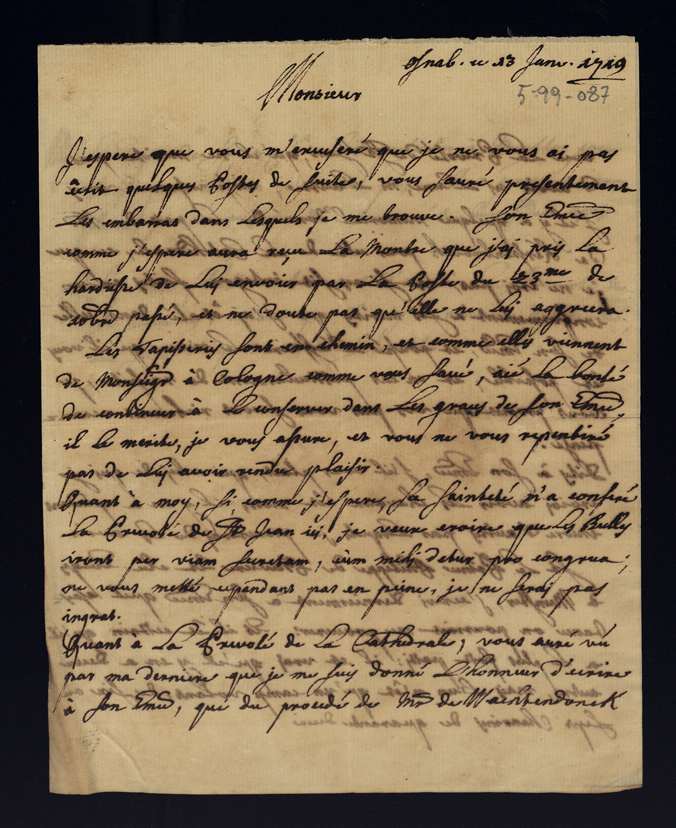 Osnab. ce 13 Janv. 1719
5-99-087
Monsieur
J'espere que vous m'excuseré que je ne vous ai pas
écrit quelques Postes de suite, vous savé presentement
Les embarras dans Lesquels je me trouve. Son Emce
comme j'espere aura reçu La Montre que j'ai pris la
hardiesse de Luj envoier par La Poste du 3me de
passé, et ne doute pas qu'elle ne Luj aggreera.
Les Tapisseries sont en chemin, et comme elles viennent
de à Cologne comme vous savé, aié la bonté
de continuer à Le conserver dans Les graces de son Emce,
il Le merite, je vous assure, et vous ne vous repentiré
pas de Luj avoir rendu plaisir.
Quant à moy, si, comme j'espere, sa Sainteté m'a conferé
La Prevoté de St Jean ici, je veux croire que Les Bulles
iront per viam secretam, cum mihi detur pro congrua;
ne vous metté cependant pas en peine, je ne serai pas
ingrat.
Quant à La Prevoté de La Cathedrale, vous auré vû
par ma derniere que je me suis donné L'honneur d'ecrire
à son Emce, que du procedé de Mr de Wachtendonck